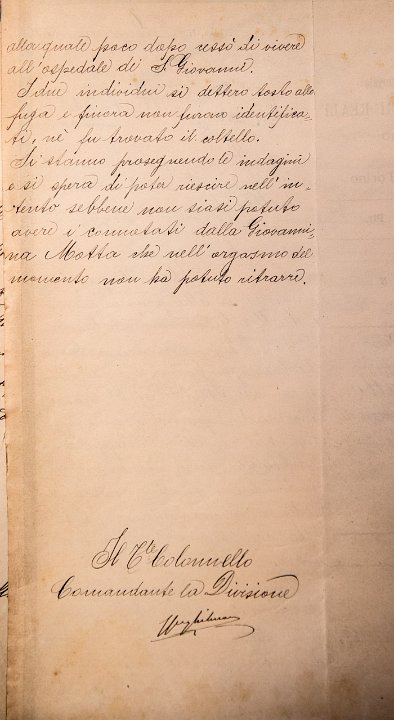 alla quale poco dopo cessò di vivere
all'ospedale di S. Giovanni.
I due individui si dettero tosto alla
fuga e finora non furono identifica-
ti, nè fu trovato il coltello.
Si stanno proseguendo le indagini
e si spera di poter riescire nell'in-
tento sebbene non siasi potuto
avere i connotati dalla Giovanni-
na Motta che nell'orgasmo del
momento non ha potuto ritrarre.
Il Tte Colonnello
Comandante la Divisione